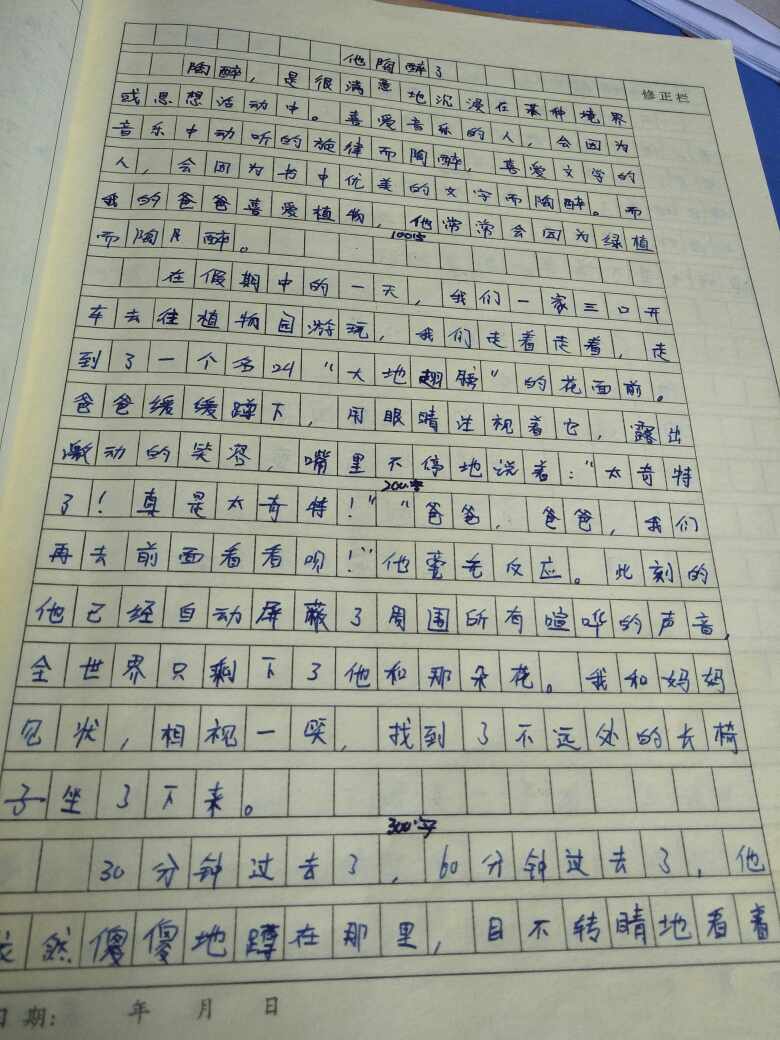 他陶醉了
修正栏
陶醉，是很满意地沉浸在某种境界
或思想活动中。喜爱音乐的人，会因为
音乐中动听的旋律而陶醉，喜爱文学的
人，会因为书中优美的文字而陶醉。而
我的爸爸喜爱植物，他常常会因为绿植
100字
而陶醉。
在假期中的一天，我们一家三口开
车去往植物园游玩，我们走着走着，走
到了一个名叫“大地翅膀”的花面前。
爸爸缓缓蹲下，用眼睛注视着它，露出
激动的笑容，嘴里不停地说着：“太奇特
200字
了！真是太奇特！”“爸爸，爸爸，我们
再去前面看看呗！”他毫无反应。此刻的
他已经自动屏蔽了周围所有喧哗的声音，
全世界只剩下了他和那朵花。我和妈妈
见状，相视一笑，找到了不远处的长椅
子坐了下来。
300字
30分钟过去了，60分钟过去了，他
依然傻傻地蹲在那里，目不转睛地看着
日期： 年 月 日